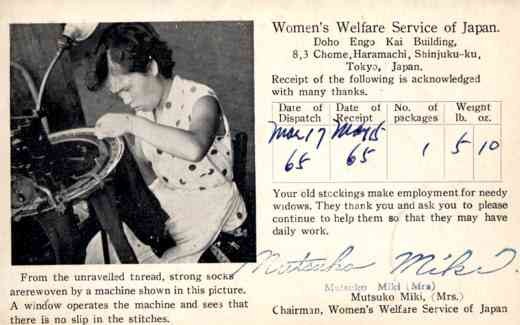 Women's Welfare Service of Japan.
Doho Engo Kai Building,
8,3 Chome,Haramachi, Shinjuku-ku,
Tokyo, Japan.
Receipt of the following is acknowledged
with many thanks.
Date of Dispatch Date of Receipt No. of packages Weight lb. oz.
Mar 17 May
65 65 1 5 10
Your old stockings make employment for needy
widows. They thank you and ask you to please
continue to help them so that they may have
daily work.
Mutsuko Miki.
Mutsuko Miki (Mrs)
Mutsuko Miki, (Mrs.)
Chairman, Women's Welfare Service of Japan
From the unravelled thread, strong socks
arerewoven by a machine shown in this picture.
A window operates the machine and sees that
there is no slip in the stitches.